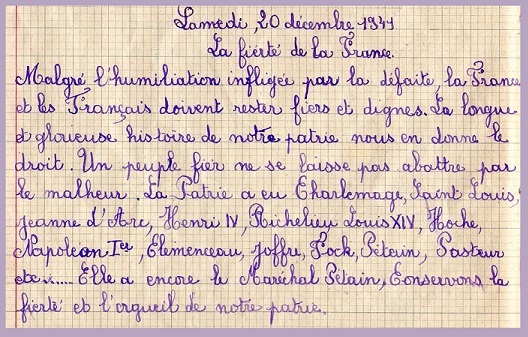 Samedi, 20 décembre 1941
La fierté de la France.
Malgré l'humiliation infligée par la défaite, la France
et les Français doivent rester fiers et dignes. La longue
et glorieuse histoire de notre patrie nous en donne le
droit. Un peuple fier ne se laisse pas abattre par
le malheur. La Patrie a eu Charlemage, Saint Louis,
Jeanne d'Arc, Henri IV, Richelieu Louis XIV, Hoche,
Napoléon Ier, Clemenceau, Joffre, Fock, Pétain, Pasteur
etc...... Elle a encore le Maréchal Pétain, Conservons la
fierté et l'orgueil de notre patrie.